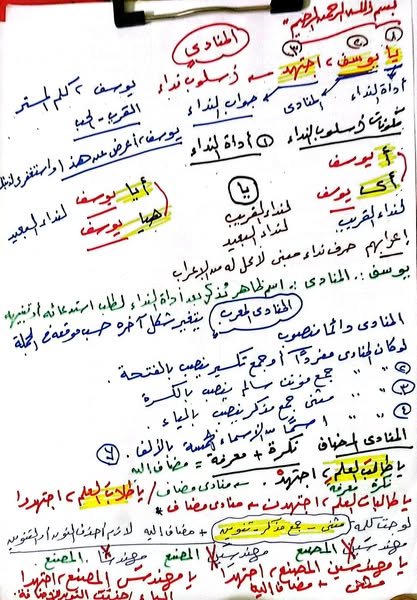 بسم الله الرحمن الرحيم
المنادى
١ ٢ ٣
يا يوسف، اجتهد → أسلوب نداء
أداة النداء المنادى جواب النداء
يوسف، كلم المستر
القرب - الحب
يوسف، أعرض عن هذا واستغفرى لذنبك
مكونات أسلوب النداء ① أداة النداء
أ يوسف
أى يوسف
لنداء القريب
يا
لنداء القريب
لنداء البعيد
أيا يوسف
هيا يوسف
لنداء البعيد
إعرابهم حرف نداء مبنى لا محل له من الإعراب
يوسف: المنادى: اسم ظاهر يُذكر بعد أداة النداء لطلب استدعائه أو تنبيهه
المنادى المعرب يتغير شكل آخره حسب موقعه فى الجملة
المنادى دائما منصوب
لو كان المنادى مفردًا أو جمع تكسير ينصب بالفتحة
② " " جمع مؤنث سالم ينصب بالكسرة
③ " " مثنى جمع مذكر ينصب بالياء
④ " " اسمًا من الأسماء الخمسة بالألف
المنادى المضاف نكرة + معرفة = مضاف إليه
يا طالبَ العلمِ، اجتهدْ → منادى مضاف / يا طلابَ العلمِ، اجتهدوا
نكرة معرفة
يا طالباتِ العلمِ، اجتهدن → منادى مضاف
لو جت كلمة مثنى - جمع مذكر - تنوين + مضاف إليه لازم أحذف النون أو التنوين
مهندسين المصنع مهندسين المصنع مهندسًا المصنع
يا مهندسين المصنع اجتهدا يا مهندسى المصنع، اجتهدا
مثنى + مضاف إليه